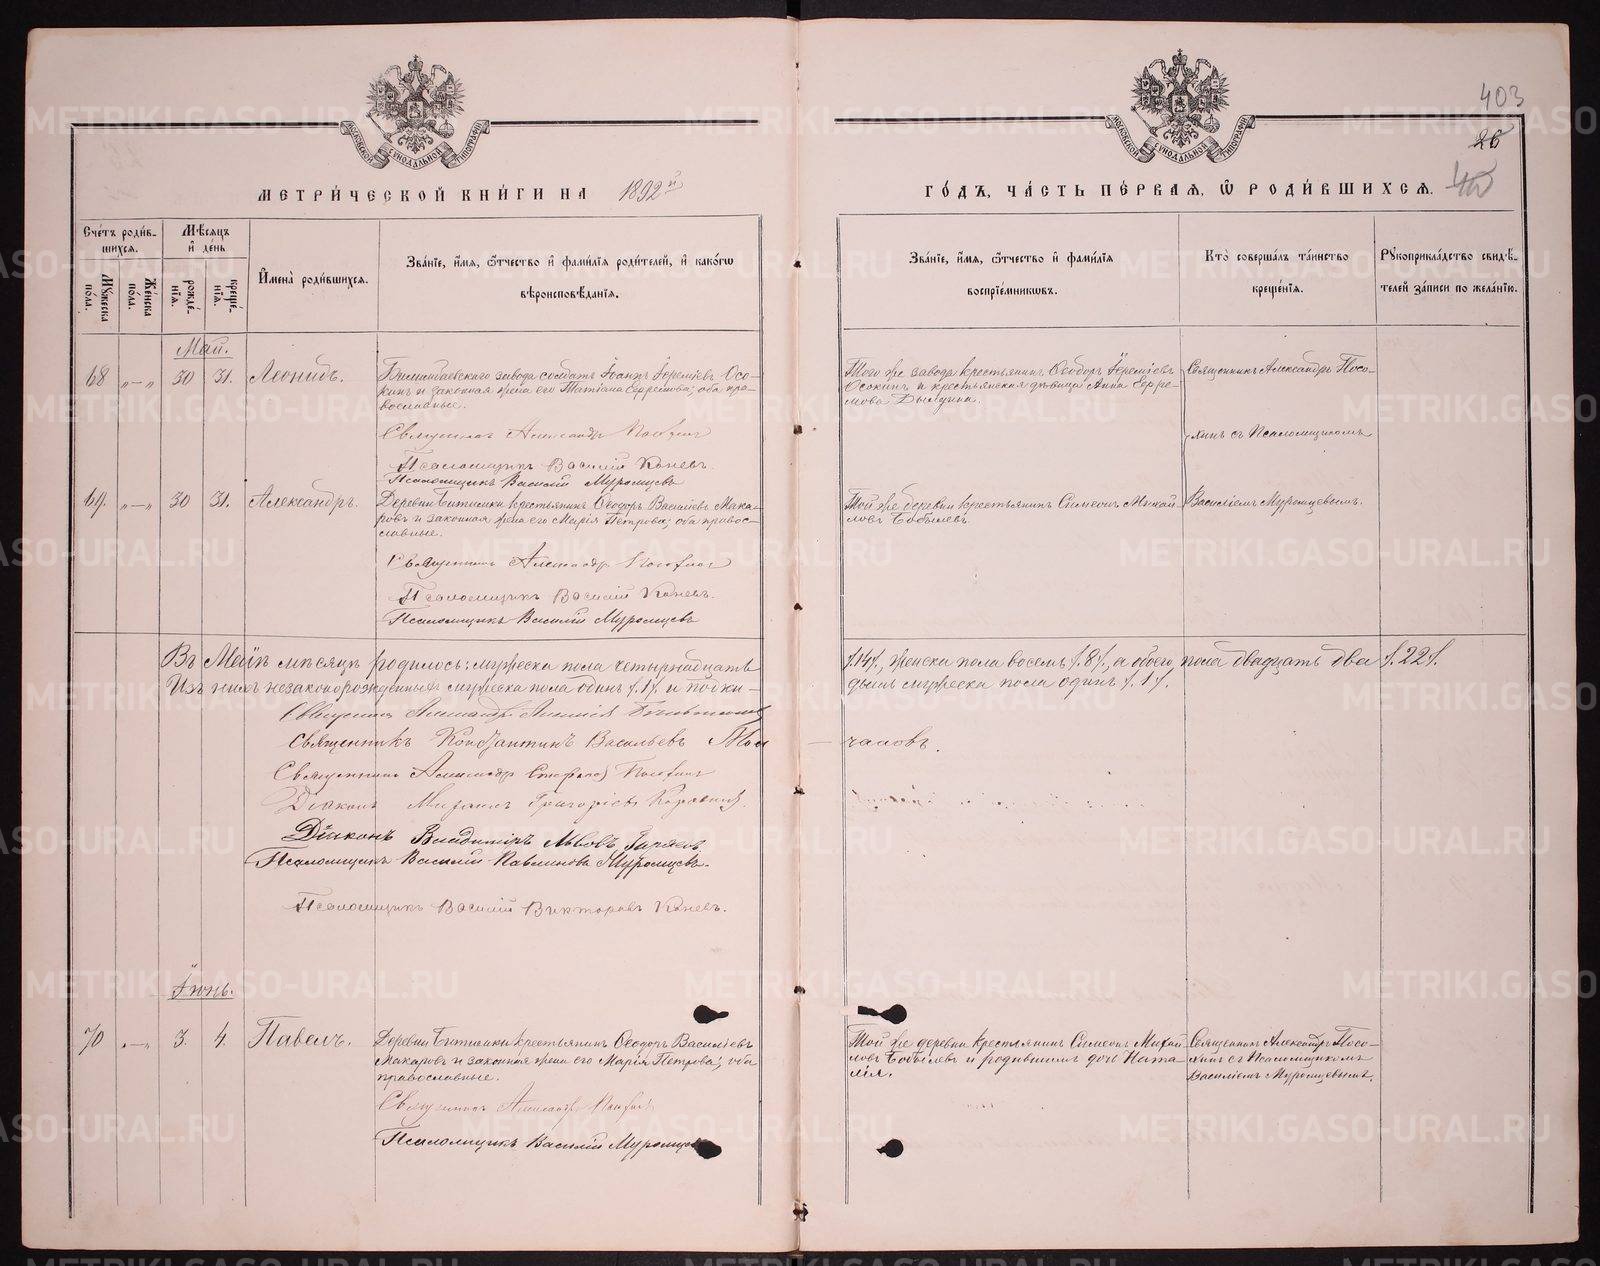 403
26
МОСКОВСКОЙ СѴНОДАЛЬНОЙ ТИПОГРАФІИ
МОСКОВСКОЙ СѴНОДАЛЬНОЙ ТИПОГРАФІИ
МЕТРИ́ЧЕСКОЙ КНИ́ГИ НА 1892й
ГО́ДЪ, ЧА́СТЬ ПЕ́РВАЯ, Ѿ РОДИ́ВШИХСЯ.
Сче́тъ роди́в-
шихся.
Мꙋ́жеска по́ла.
Же́нска по́ла.
Мѣ́сяцъ
и҆ де́нь
рожде́-
нїя.
креще́-
нїя.
И҆мена̀ роди́вшихся.
Зва́нїе, и҆́мя, ѻ҆́тчество и҆ фами́лїя роди́телей, и҆ како́гѡ
вѣроисповѣ́данїя.
Зва́нїе, и҆́мя, ѻ҆́тчество и҆ фами́лїя
воспрїе́мникѡвъ.
Кто̀ соверша́лъ та́инство
креще́нїя.
Рꙋкоприкла́дство свидѣ́-
телей за́писи по жела́нїю.
Май.
68 „—„ 30 31. Леонидъ.
Билимбаевскаго завода солдатъ Іоаннъ Іереміевъ Осо-
кинъ и законная жена его Татіана Ефремова; оба пра-
вославные.
Священникъ Александръ Посохинъ
Псаломщикъ Василій Коневъ.
Псаломщикъ Василій Муромцевъ
Того же завода крестьянинъ Ѳеодоръ Іереміевъ
Осокинъ и крестьянская дѣвица Анна Ефре-
мова
Священникъ Александръ Посо-
хинъ съ Псаломщикомъ
69. „—„ 30 31. Александръ.
Деревни Битимки крестьянинъ Ѳеодоръ Василіевъ Мака-
ровъ и законная жена его Марія Петрова; оба правос-
лавные.
Священникъ Александръ Посохинъ
Псаломщикъ Василій Коневъ.
Псаломщикъ Василій Муромцевъ
Той же деревни крестьянинъ Симеонъ Михай-
ловъ Бобылевъ
Василіемъ Муромцевымъ.
Въ Маѣ мѣсяцѣ родилось: мужеска пола четырнадцать /14/, женска пола восемь /8/, а обоего пола двадцать два /22/.
Изъ нихъ незаконорожденныхъ мужеска пола одинъ /1/ и подки-
дышъ мужеска пола одинъ /1/.
Священникъ Константинъ Васильевъ
Священникъ Александръ Посохинъ
Діаконъ Михаилъ Григоріевъ
Діаконъ Владиміръ Львовъ
Псаломщикъ Василій Павлиновъ Муромцевъ.
Псаломщикъ Василій Викторовъ Коневъ.
Іюнь.
70 „—„ 3. 4. Павелъ.
Деревни Битимки крестьянинъ Ѳеодоръ Василіевъ
Макаровъ и законная жена его Марія Петрова; оба
православные.
Священникъ Александръ Посохинъ
Псаломщикъ Василій Муромцевъ
Той же деревни крестьянинъ Симеонъ Михай-
ловъ Бобылевъ и родившихъ дочь Ната-
лія.
Священникъ Александръ Посо-
хинъ съ Псаломщикомъ
Василіемъ Муромцевымъ.
METRIKI.GASO-URAL.RU